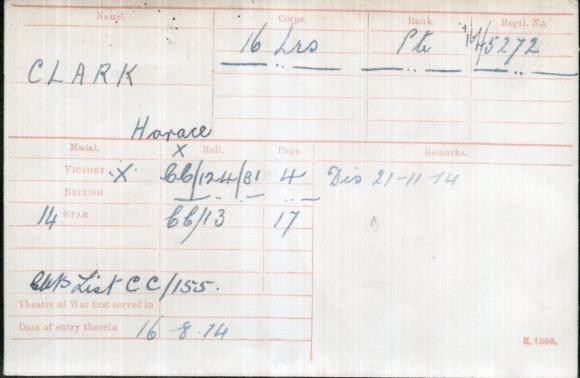 Name. Corps. Rank. Regtl. No.
16 Lrs Pte 16/5272
CLARK
Horace
Medal. X Roll. Page. Remarks.
VICTORY X CC/124/81 4 Dis 21-11-14
BRITISH — .. — .. —
14 STAR CC/13 17
List CC/155.
Theatre of War first served in
Date of entry therein 16-8-14
K. 1380.